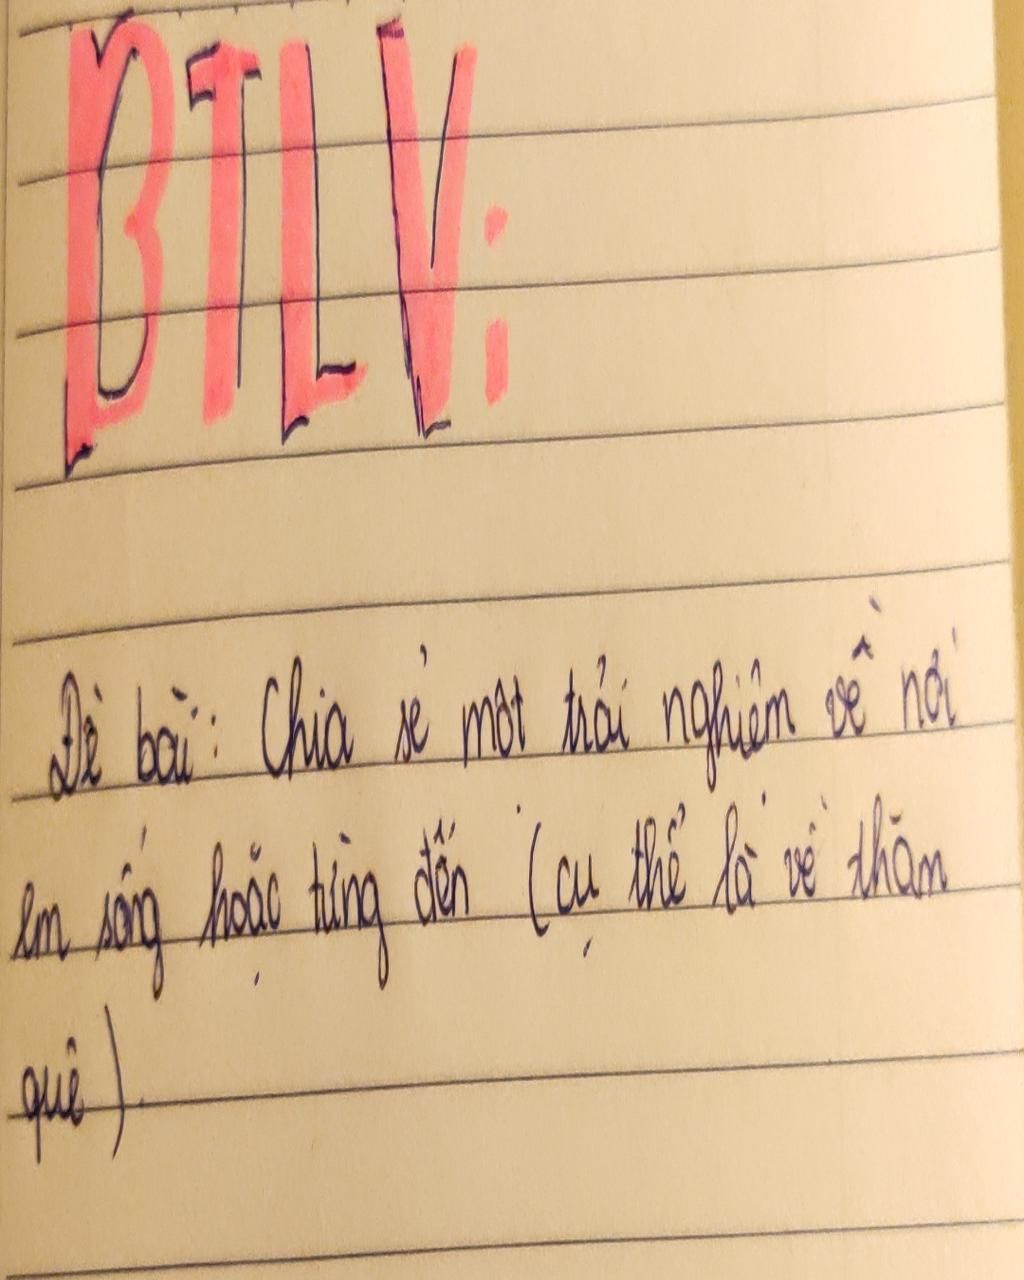 BTLV:
Đề bài: Chia sẻ một trải nghiệm về nơi
em sống hoặc từng đến (cụ thể là về thăm
quê).